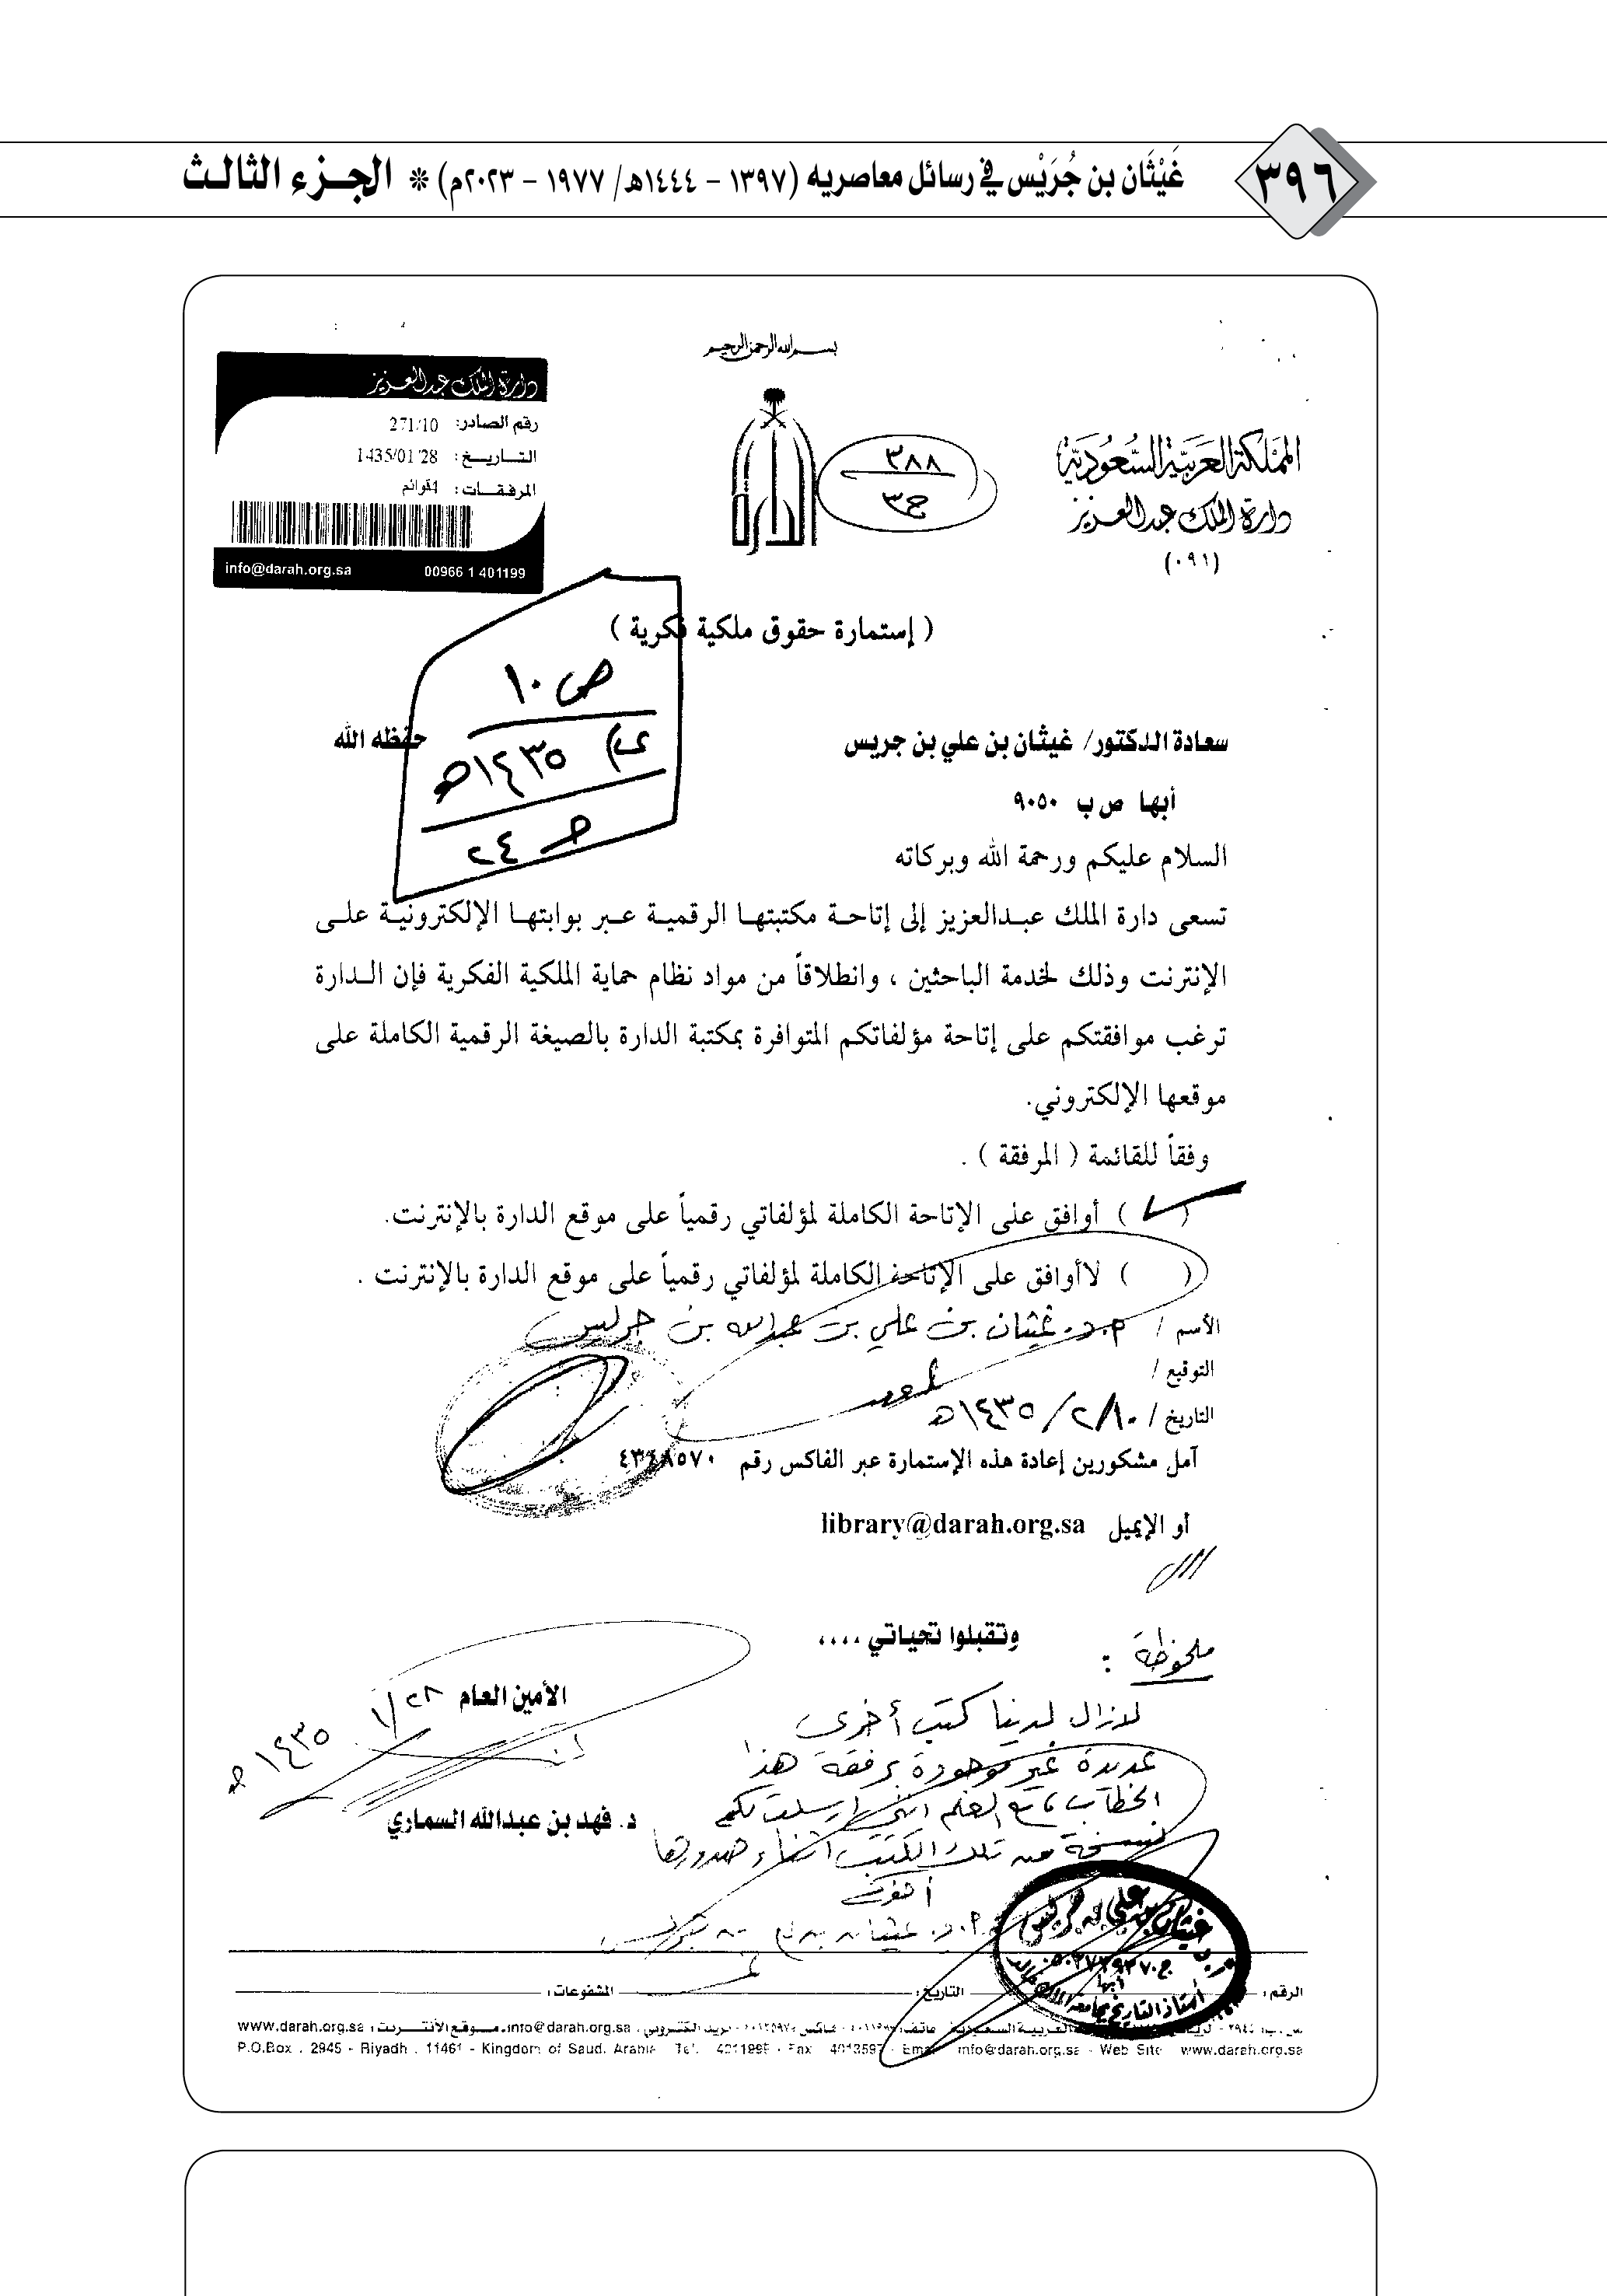 ٣٩٦
غَيْثَان بن جُرَيْس في رسائل معاصريه (١٣٩٧ - ١٤٤٤هـ/ ١٩٧٧ - ٢٠٢٣م) * الجزء الثالث
بسم الله الرحمن الرحيم
المملكة العربية السعودية
دارة الملك عبدالعزيز
(٠٩١)
الدارة
٣٨٨
ح٣
دارة الملك عبدالعزيز
رقم الصادر: 271/10
التـاريـخ: 1435/01/28
المرفقـات: 4قوائم
info@darah.org.sa 00966 1 401199
( إستمارة حقوق ملكية فكرية )
ص ١٠
١٤٣٥هـ
حـ ٢٤
سعادة الدكتور/ غيثان بن علي بن جريس حفظه الله
أبها ص ب ٩٠٥٠
السلام عليكم ورحمة الله وبركاته
تسعى دارة الملك عبدالعزيز إلى إتاحة مكتبتها الرقمية عبر بوابتها الإلكترونية على
الإنترنت وذلك لخدمة الباحثين ، وانطلاقاً من مواد نظام حماية الملكية الفكرية فإن الدارة
ترغب موافقتكم على إتاحة مؤلفاتكم المتوافرة بمكتبة الدارة بالصيغة الرقمية الكاملة على
موقعها الإلكتروني.
وفقاً للقائمة ( المرفقة ) .
( ✓ ) أوافق على الإتاحة الكاملة لمؤلفاتي رقمياً على موقع الدارة بالإنترنت.
( ) لاأوافق على الإتاحة الكاملة لمؤلفاتي رقمياً على موقع الدارة بالإنترنت .
الأسم / أ.د. غيثان بن علي بن عبدالله بن جريس
التوقيع /
التاريخ / ٢/١٠/ ١٤٣٥هـ
آمل مشكورين إعادة هذه الإستمارة عبر الفاكس رقم ٤٣٦٨٥٧٠
أو الإيميل library@darah.org.sa
وتقبلوا تحياتي ....
ملحوظة :
لازال لدينا كتب أخرى
عديدة غير موجودة برفقة هذا
الخطاب مع العلم انني ارسلت لكم
نسخة من تلك الكتب اثناء صدورها
أخوكم
أ.د. غيثان بن علي بن جريس
الأمين العام
١/٢٨ ١٤٣٥هـ
د. فهد بن عبدالله السماري
غيثان بن علي بن جريس
أبها
أستاذ التاريخ بجامعة الملك خالد
الرقم : التاريخ : المشفوعات :
P.O.Box . 2945 - Riyadh . 11461 - Kingdom of Saudi Arabia Tel. 4011999 - Fax 4013597 - Email info@darah.org.sa - Web Site www.darah.org.sa